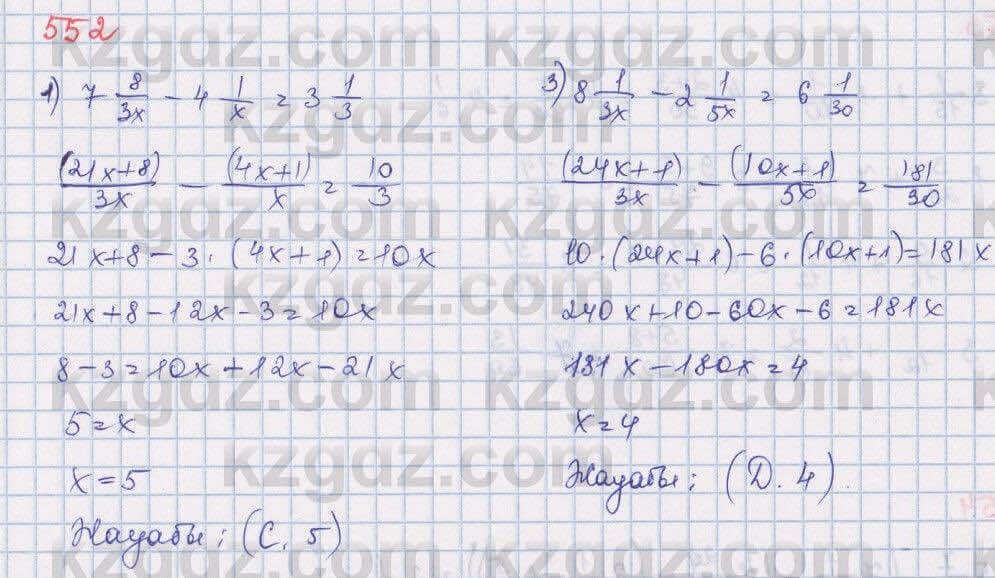 552
1) 7 8/3x - 4 1/x = 3 1/3
(21x+8)/3x - (4x+1)/x = 10/3
21x+8-3·(4x+1)=10x
21x+8-12x-3=10x
8-3=10x+12x-21x
5=x
x=5
Жауабы: (С. 5)
3) 8 1/3x - 2 1/5x = 6 1/30
(24x+1)/3x - (10x+1)/5x = 181/30
10·(24x+1)-6·(10x+1)=181x
240x+10-60x-6=181x
181x-180x=4
x=4
Жауабы: (D. 4).
kzgdz.com
kzgdz.com
kzgdz.com
kzgdz.com
kzgdz.com
kzgdz.com